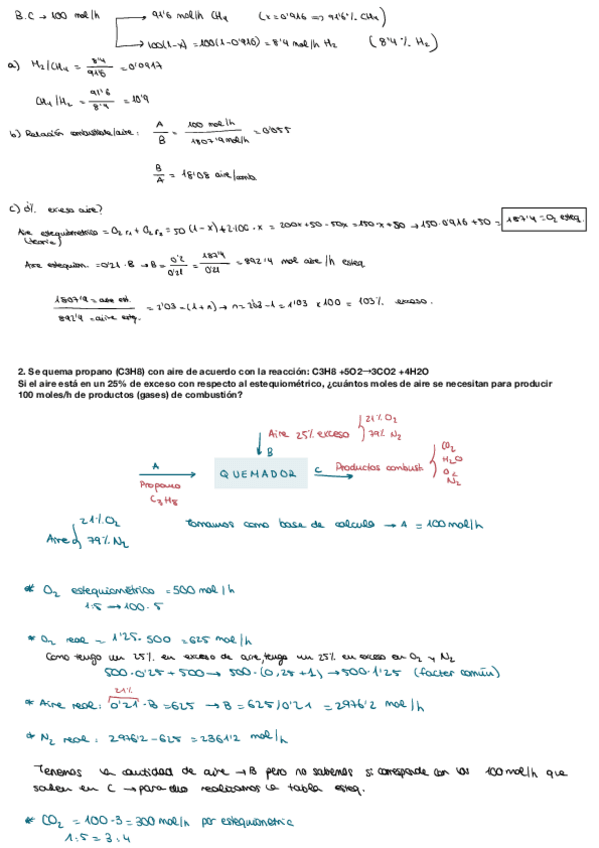 B.C → 100 mol/h → 91'6 mol/h CH4 (x=0'916 => 91'6% CH4)
→ 100(1-x) = 100(1-0'916) = 8'4 mol/h H2 (8'4% H2)
a) H2/CH4 = 8'4/91'6 = 0'0917
CH4/H2 = 91'6/8'4 = 10'9
b) Relación combustible/aire: A/B = 100 mol/h / 1807'9 mol/h = 0'055
B/A = 18'08 aire/comb
c) ¿% exceso aire?
Aire estequiométrico = O2 r1 + O2 r2 = 50 (1-x) + 2·100·x = 200x+50-50x = 150·x+50 → 150·0'916+50 = 187'4 = O2 esteq.
(teoría)
Aire estequiom. = 0'21·B → B = 0'2/0'21 = 187'4/0'21 = 892'4 mol aire/h esteq
1807'9 = aire est. / 892'4 = aire esteq. = 2'03 = (1+n) → n = 2'03-1 = 1'03 x100 = 103% exceso.
2. Se quema propano (C3H8) con aire de acuerdo con la reacción: C3H8 +5O2→3CO2 +4H2O
Si el aire está en un 25% de exceso con respecto al estequiométrico, ¿cuántos moles de aire se necesitan para producir
100 moles/h de productos (gases) de combustión?
Aire 25% exceso { 21% O2
79% N2
B
A
Propano
C3H8
QUEMADOR
C
Productos combust { CO2
H2O
O2
N2
Aire { 21% O2
79% N2
tomamos como base de calculo → A = 100 mol/h
* O2 estequiométrico = 500 mol/h
1:5 → 100·5
* O2 real = 1'25·500 = 625 mol/h
Como tengo un 25% en exceso de aire, tengo un 25% en exceso en O2 y N2
500·0'25 + 500 → 500·(0,25+1) → 500·1'25 (factor común)
21%
* Aire real: 0'21·B = 625 → B = 625/0'21 = 2976'2 mol/h
* N2 real: 2976'2-625 = 2361'2 mol/h
Tenemos la cantidad de aire → B pero no sabemos si corresponde con los 100 mol/h que
salen en C → para ello realizamos la tabla esteq.
* CO2 = 100·3 = 300 mol/h por estequiometria
1:5 = 3:4